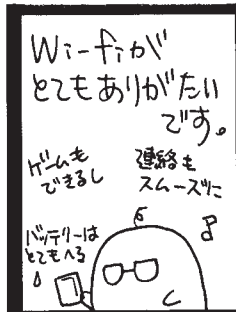 Wi-fiが
とてもありがたい
です。
ゲームも
できるし
連絡も
スムーズに
バッテリーは
とてもへる